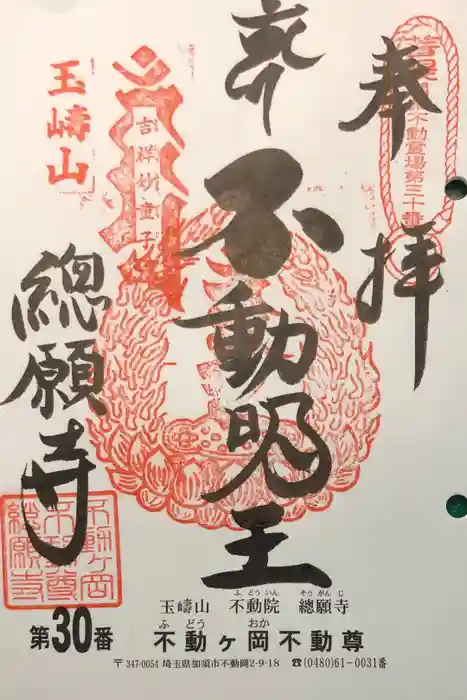 奉拝
不動明王
總願寺
玉嶹山
吉祥妙童子
不動霊場第三十番
不動ヶ岡
不動尊
總願寺
玉嶹山 不動院 總願寺
ふどういん そうがんじ
第30番 不動ヶ岡不動尊
ふどう おか
〒347-0054 埼玉県加須市不動岡2-9-18 ☎(0480)61-0031番